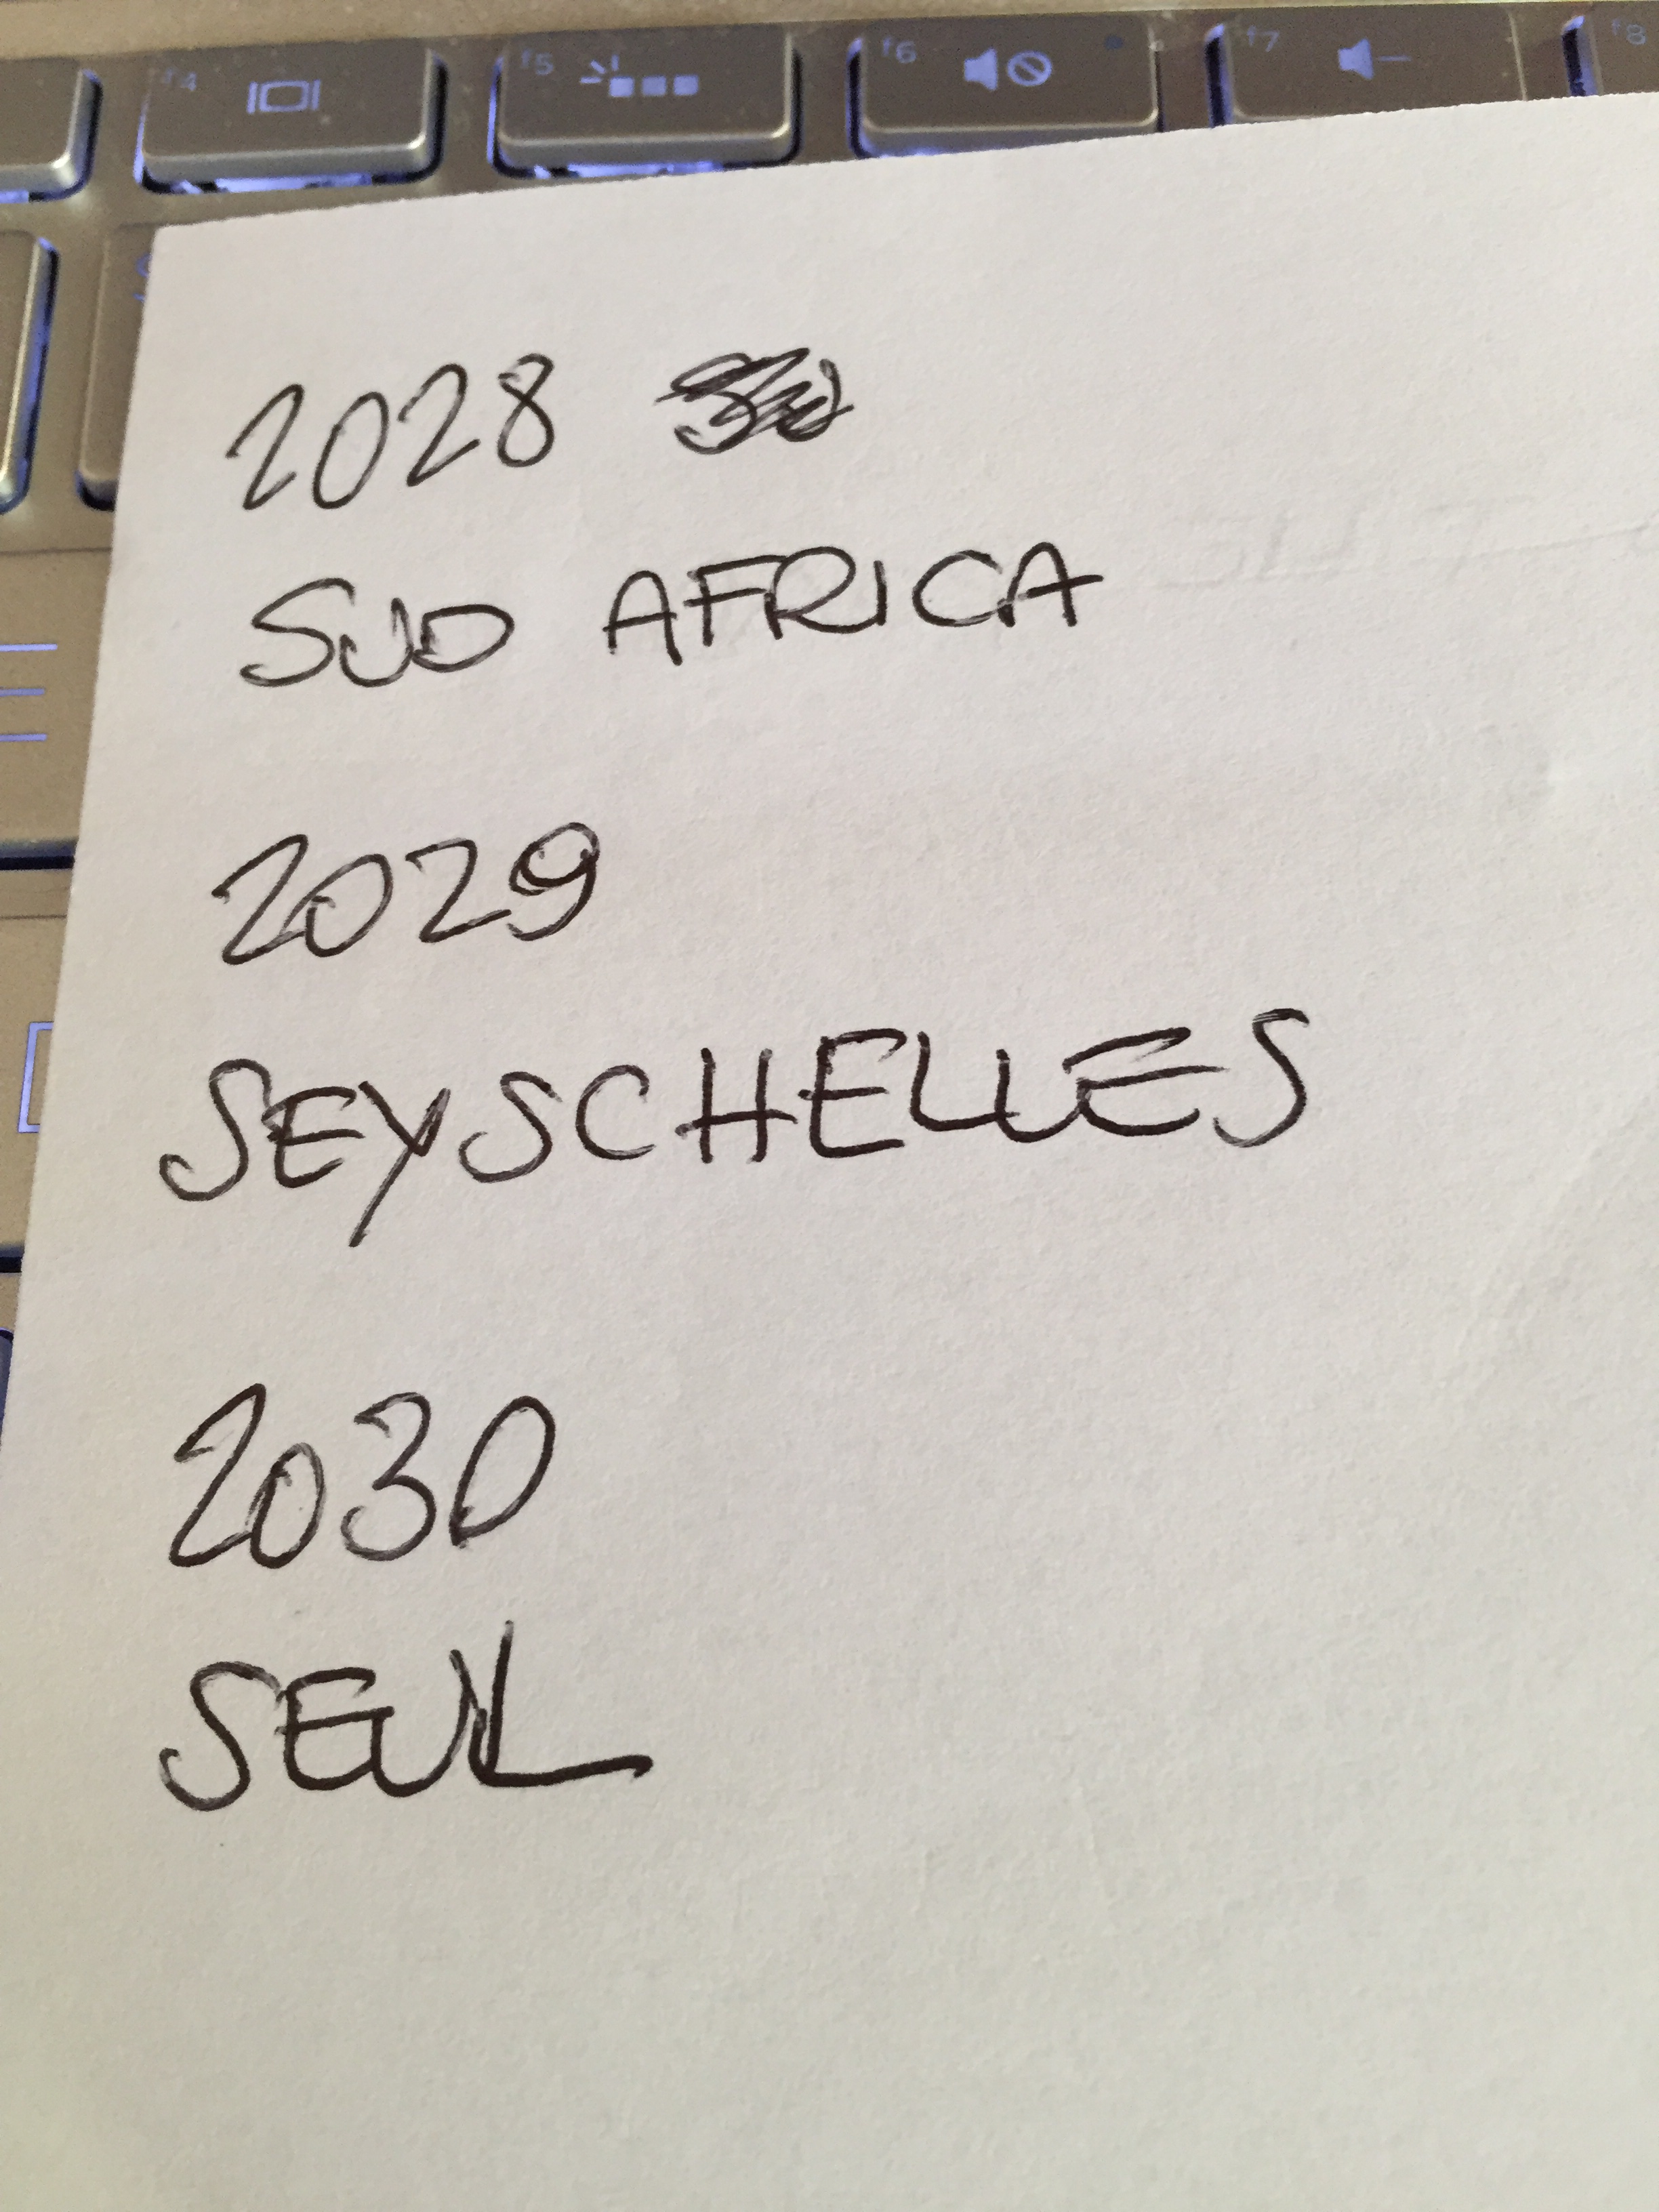 f4
f5
f6
f7
f8
2028
SUD AFRICA
2029
SEYSCHELLES
2030
SEUL